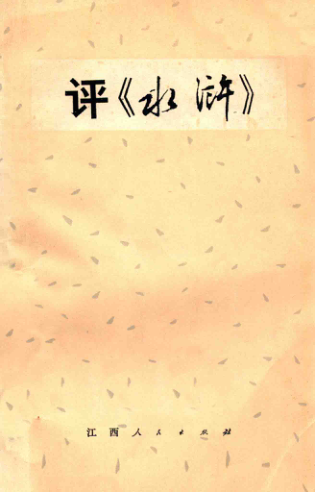 评《水浒》
江西人民出版社